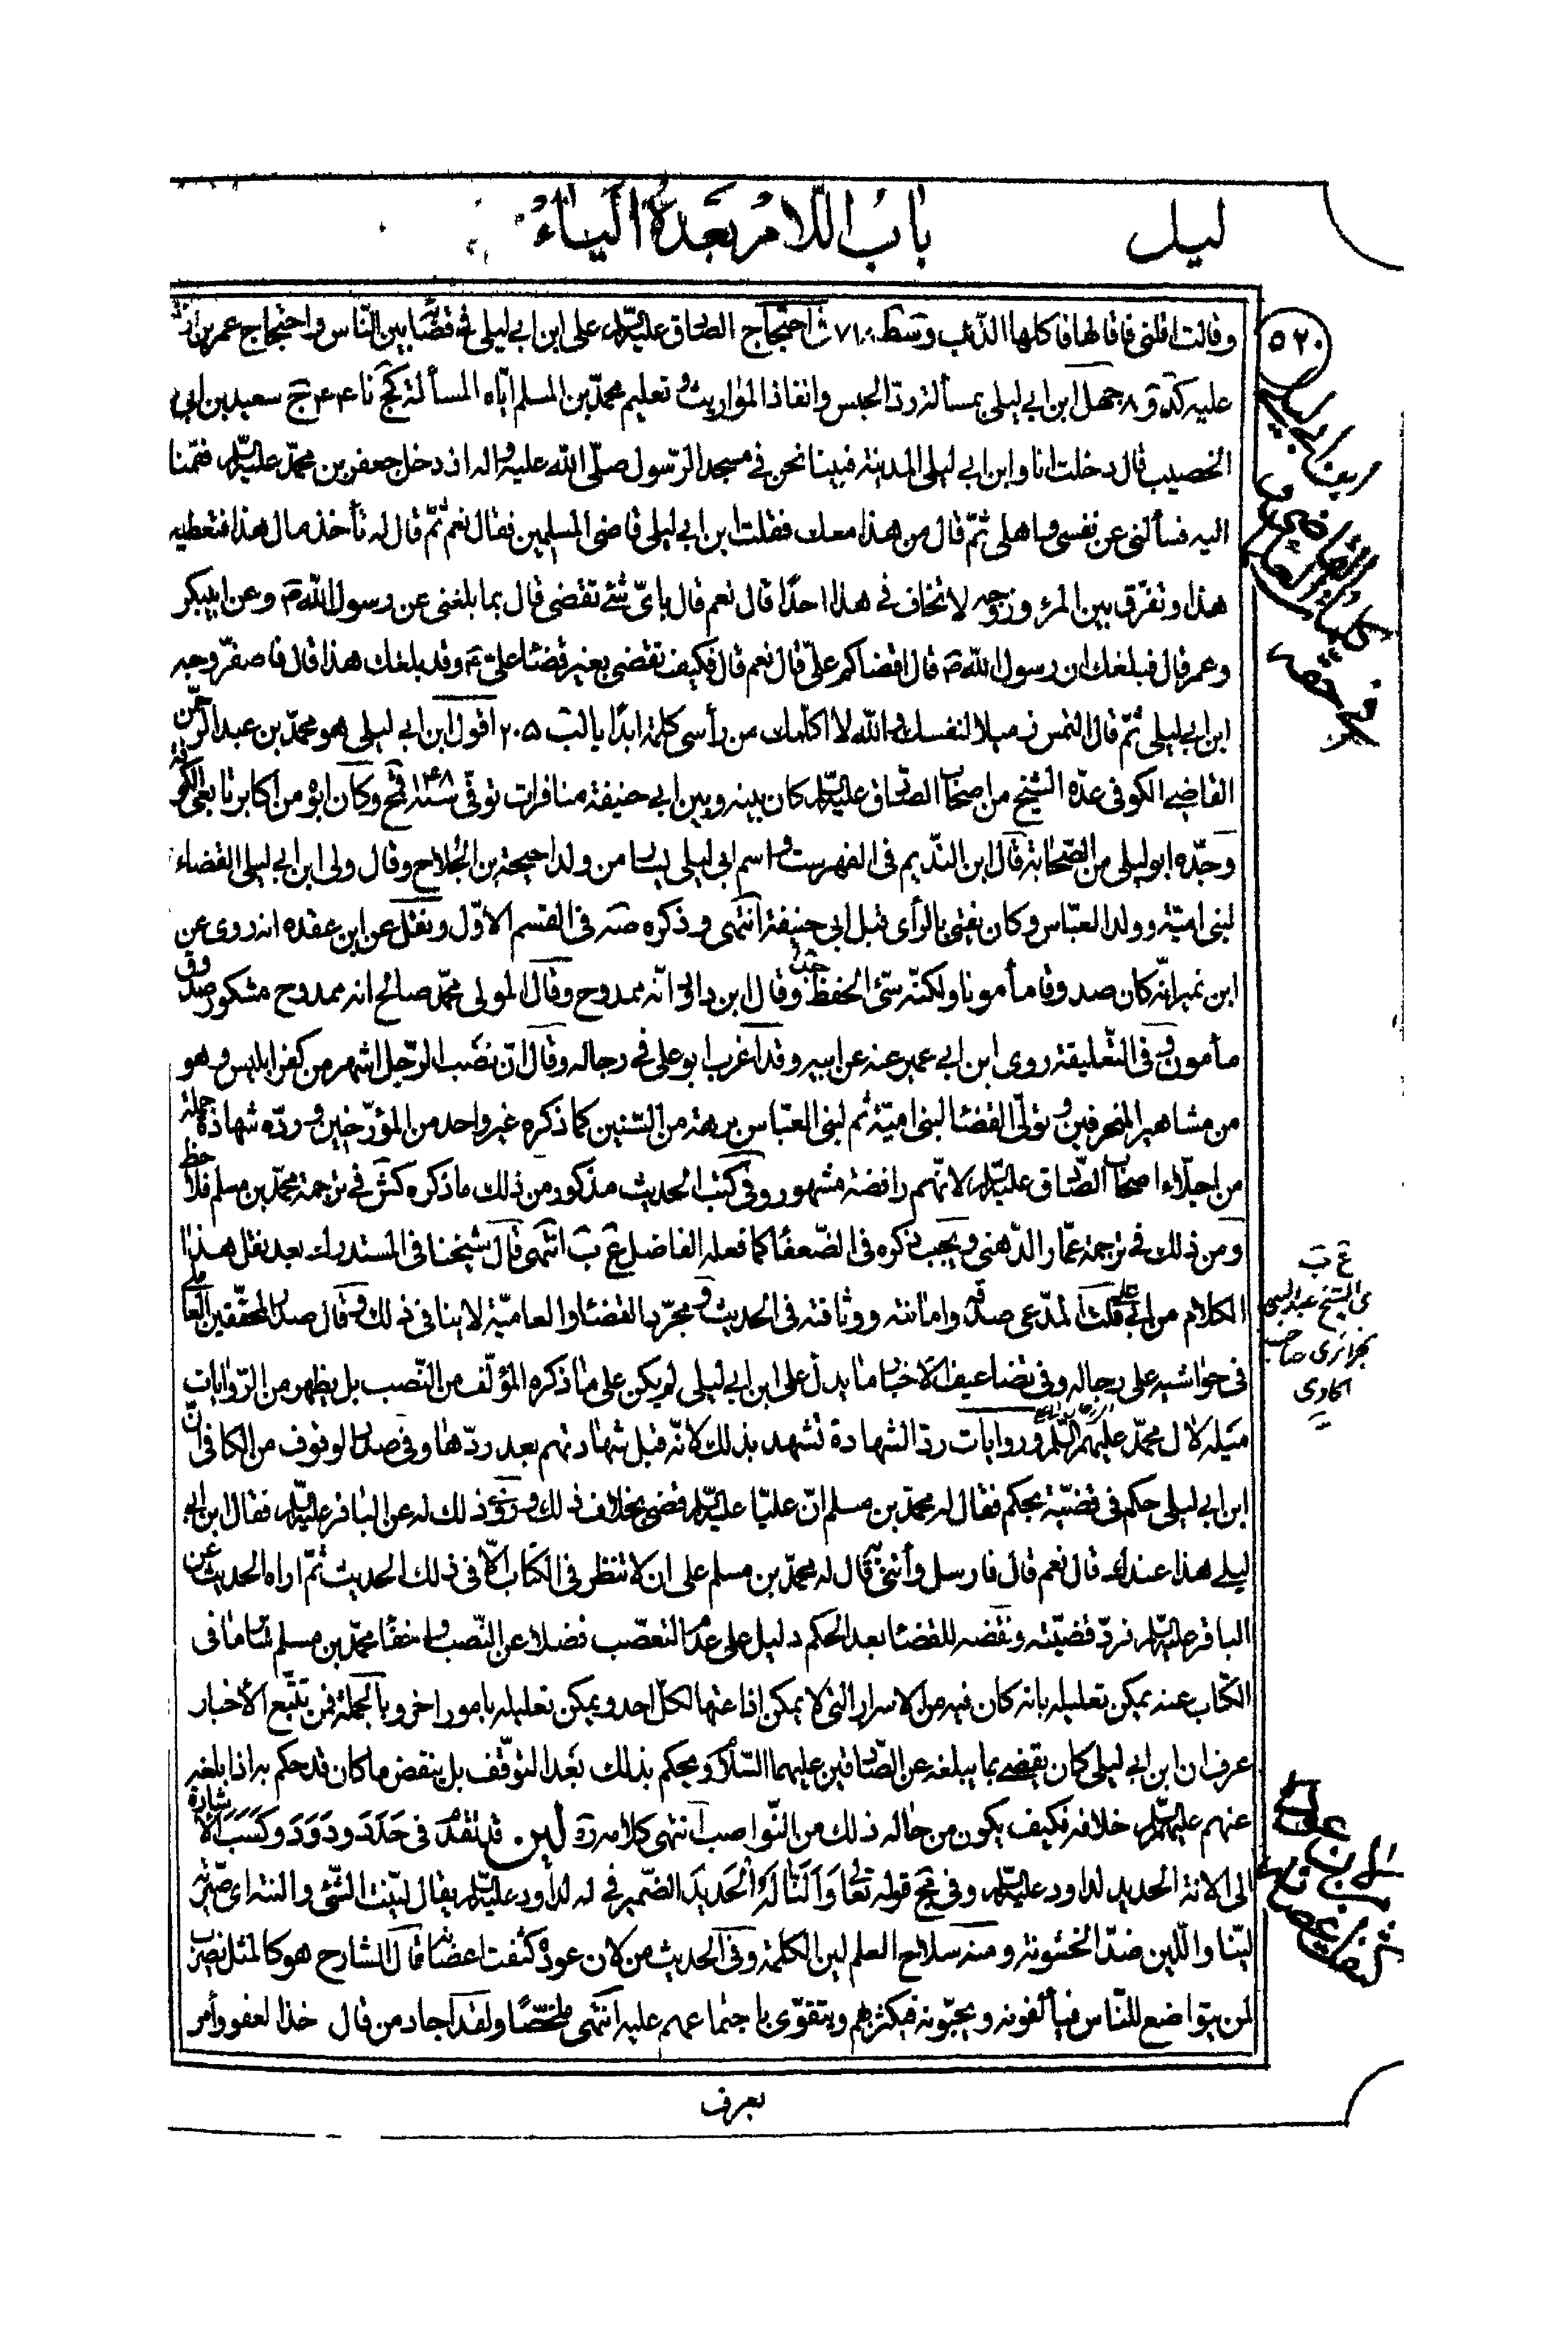 ليل
باب اللام بعده الياء
٥٢٠
وقالت اقلني فاقالها فاكلها الذئب احتجاج الصادق عليه السلام على ابن ابي ليلى في قضائه بين الناس واحتجاج عمر بن
عليه جهل ابن ابي ليلى بمسألة ردّ الحبس وانفاذ المواريث وتعليم محمّد بن المسلم ايّاه المسألة سعيد بن ابي
الخصيب قال دخلت انا وابن ابي ليلى المدينة فبينا نحن في مسجد الرّسول صلّى الله عليه واله اذ دخل جعفر بن محمّد عليه السلام فقمنا
اليه فسألني عن نفسي واهلي ثمّ قال من هذا معك فقلت ابن ابي ليلى قاضي المسلمين فقال نعم ثمّ قال له تأخذ مال هذا فتعطيه
هذا وتفرّق بين المرء وزوجه لا تخاف في هذا احدًا قال نعم قال بايّ شئ تقضي قال بما بلغني عن رسول الله ص وعن ابيبكر
وعمر قال فبلغك ان رسول الله ص قال اقضاكم عليّ قال نعم قال فكيف تقضي بغير قضاء عليّ ع وقد بلغك هذا قال فاصفرّ وجه
ابن ابي ليلى ثمّ قال التمس لنفسك والله لا اكلمك من رأسي كلمة ابدًا ٢٠٥ اقول ابن ابي ليلى هو محمّد بن عبد الرّحمن
القاضي الكوفي عدّه الشيخ من اصحاب الصادق عليه السلام كان بينه وبين ابي حنيفة منافرات توفّى سنة ١٤٨ وكان ابوه من اكابر تابعي الكوفة
وجدّه ابو ليلى من الصّحابة قال ابن النّديم في الفهرست واسم ابي ليلى يسار من ولد احيحة بن الجلاح وقال ولى ابن ابي ليلى القضاء
لبني اميّة وولد العبّاس وكان يفتي بالرأى قبل ابي حنيفة انتهى وذكره صه في القسم الاوّل ونقل عن ابن عقده انه روى عن
ابن نمير انّه كان صدوقا مأمونا ولكنّه سيّئ الحفظ وقال ابن داود انّه ممدوح وقال المولى محمّد صالح انه ممدوح مشكور صدوق
مأمون وفي التّعليقة روى ابن ابي عمير عنه عن ابيه وقد اغرب ابو علي في رجاله وقال انّ نصب الرّجل اشهر من كفر ابليس وهو
من مشاهير المنحرفين وتولّى القضاء لبني اميّة ثم لبني العبّاس برهة من السّنين كما ذكره غير واحد من المؤرّخين وردّه شهادة جملة
من اجلّاء اصحاب الصّادق عليه السلام لانّهم رافضة مشهور وفي كتب الحديث مذكور من ذلك ما ذكره كش في ترجمة محمّد بن مسلم فلاحظ
ومن ذلك في ترجمة عمّار الدّهني ويجب ذكره في الضّعفاء كما فعله الفاضل ع ب انتهى قال شيخنا في المستدرك بعد نقل هذا
الكلام من ابي علي قلت المدّعى صدقه وامانته ووثاقته في الحديث ومجرّد القضاء والعاميّة لا ينافي ذلك وقال صدر المحقّقين العاملي
في حواشيه على رجاله وفي تضاعيف الاخبار ما يدلّ على ابن ابي ليلى لم يكن على ما ذكره المؤلّف من النّصب بل يظهر من الرّوايات
ميله لال محمّد عليهم السلام وروايات ردّ الشهادة تشهد بذلك لانّه قبل شهادتهم بعد ردّها وفي صدر الوقوف من الكافي انّ
ابن ابي ليلى حكم في قضيّة بحكم فقال له محمّد بن مسلم انّ عليّا عليه السلام قضى بخلاف ذلك وروى ذلك له عن الباقر عليه السلام فقال ابن ابي
ليلى هذا عندك قال نعم قال فارسل وأتني به قال له محمّد بن مسلم على ان لا تنظر في الكتاب الّا في ذلك الحديث ثمّ اراه الحديث عن
الباقر عليه السلام فردّ قضيّته ونقضه للقضاء بعد الحكم دليل على عدم التعصّب فضلا عن النّصب واخفاء محمّد بن مسلم سائر ما في
الكتاب عنه يمكن تعليله بانه كان فيه من الاسرار التي لا يمكن اذاعتها لكلّ احد ويمكن تعليله بامور اخر وبالجملة فمن تتبّع الأخبار
عرف ان ابن ابي ليلى كان يقضي بما يبلغه عن الصّادقين عليهما السّلام ويحكم بذلك بعد التوقّف بل ينقض ما كان قد حكم به اذا بلغه
عنهم عليهم السلام خلافه فكيف يكون من حاله ذلك من النّواصب انتهى كلامه ره لين. قد تقدّم في حَدَدَ ودَوَدَ وكَسَبَ الاشارة
الى الانة الحديد لداود عليه السلام وفي مج قوله تعالى وَاَلَنّا لَهُ الْحَديدَ الضّمير في له لداود عليه السلام يقال ليّنت الشّئ والنته اى صيّرته
ليّنا واللّين ضدّ الخشونة ومنه سلاح العلم لين الكلمة وفي الحديث من لان عوده كثفت اغصانه قال الشارح هو كالمثل يضرب
لمن يتواضع للنّاس فيألفونه ويحبّونه فيكثر بهم ويتقوّى باجتماعهم عليه انتهى ملخّصًا ولقد اجاد من قال خذ العفو وأمر
بعرف
ع ب
الشيخ عبد النبي
الجزائري صاحب
الحاوي